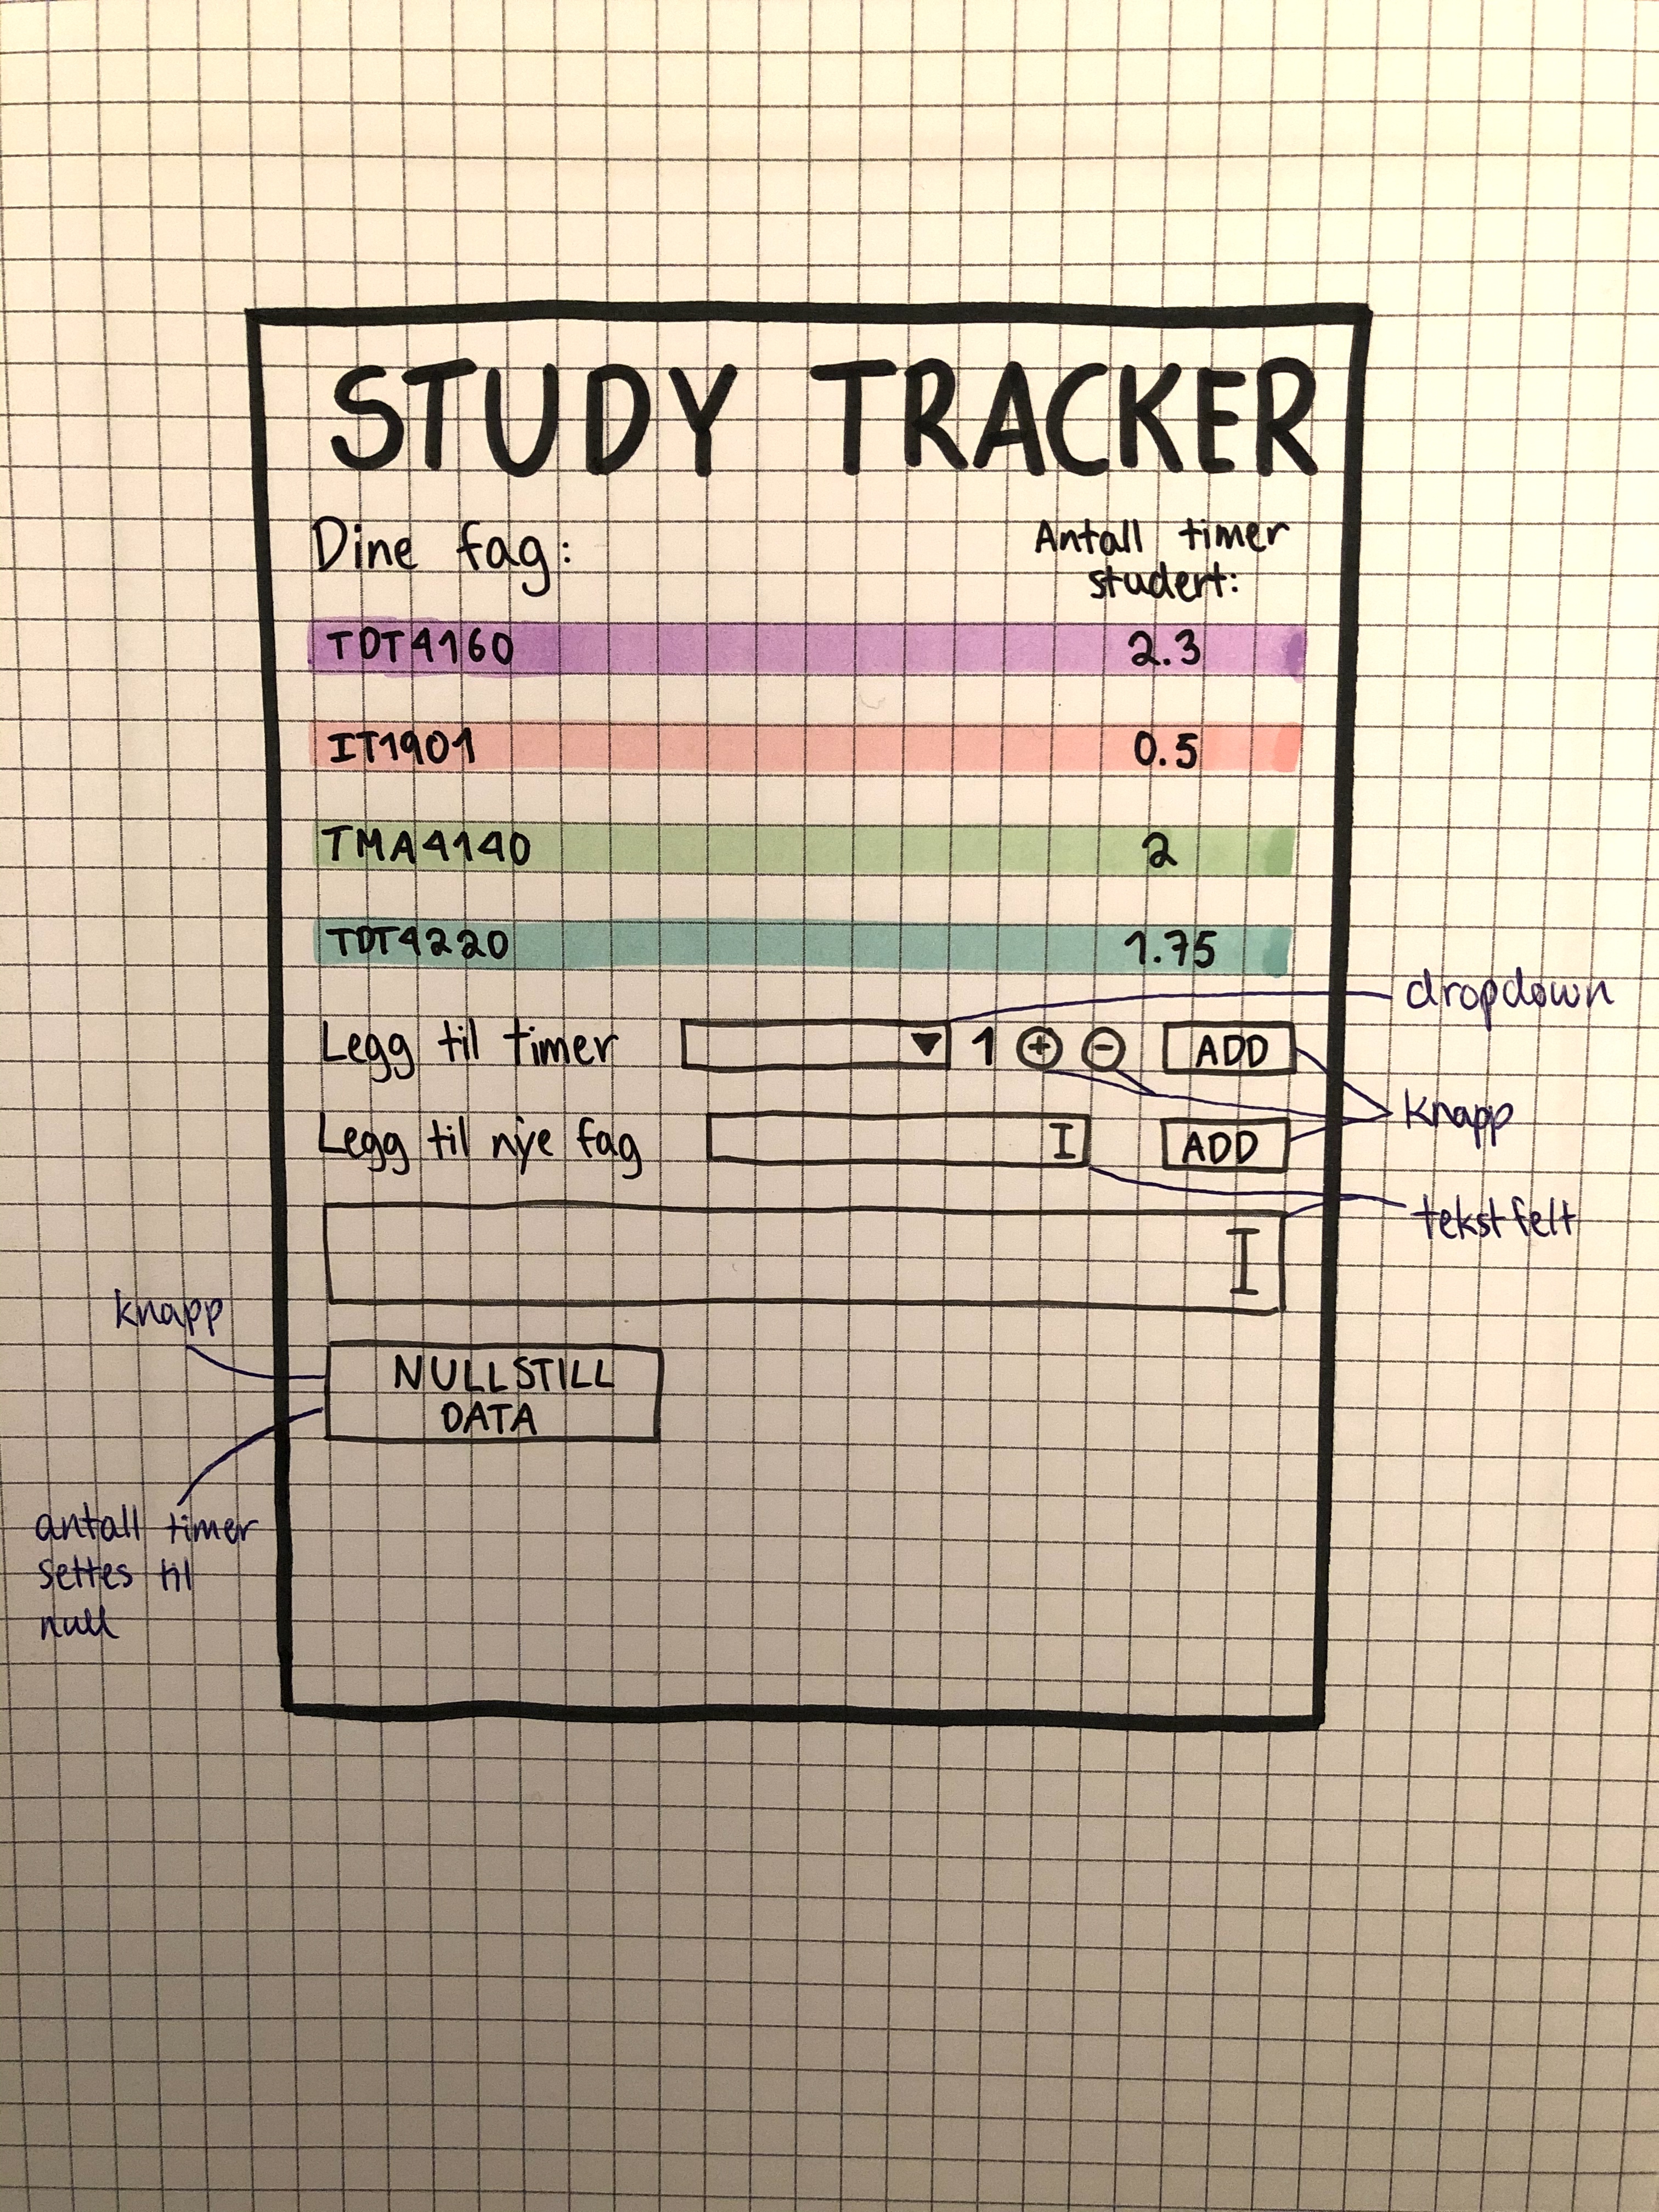 STUDY TRACKER
Dine fag:
Antall timer
studert:
TDT4160 2.3
IT1901 0.5
TMA4140 2
TDT4220 1.75
dropdown
Legg til timer 1 + - ADD
knapp
Legg til nye fag I ADD
tekstfelt
I
knapp
NULLSTILL
DATA
antall timer
settes til
null